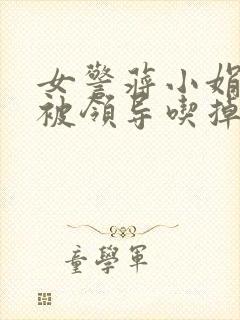 女警蒋小娟
被领导喫掉
童學軍